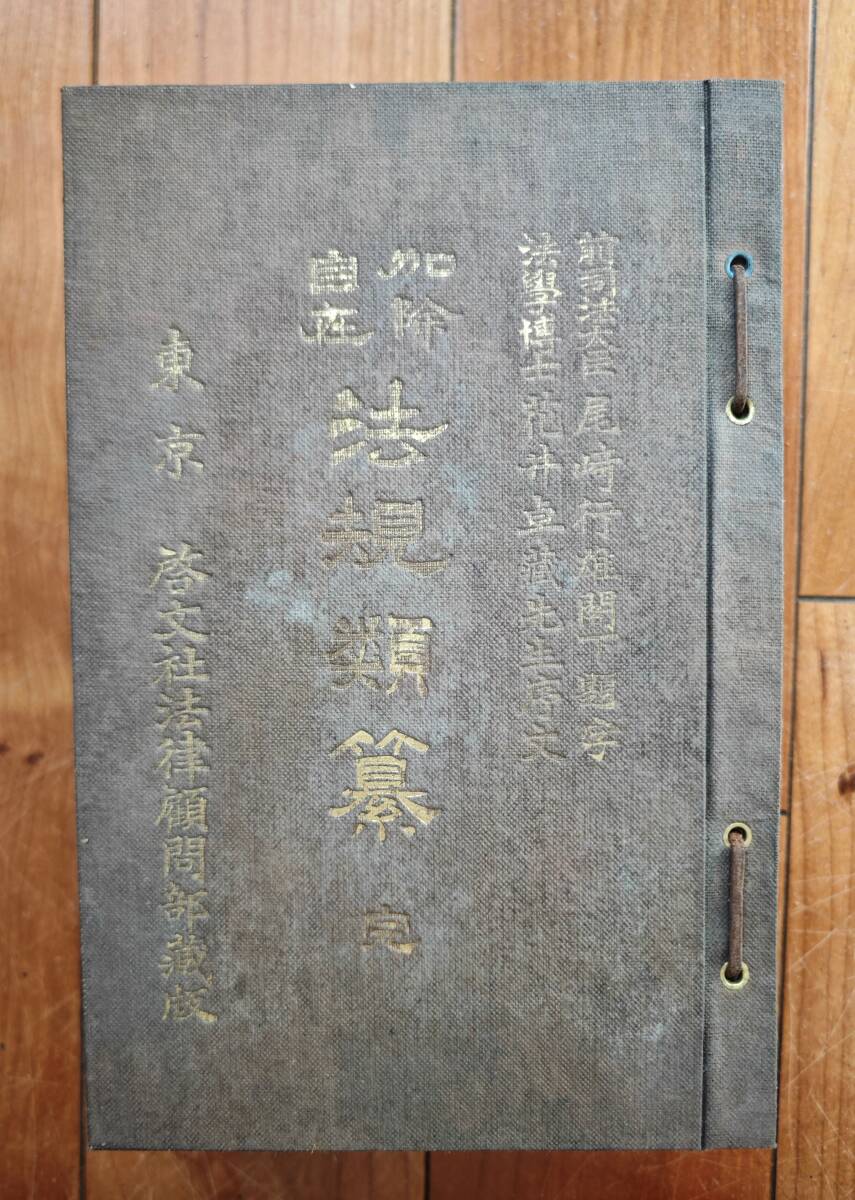 前司法大臣尾崎行雄閣下題字
法學博士花井卓藏先生序文
加除
自在
法規類纂 完
東京 啓文社法律顧問部藏版